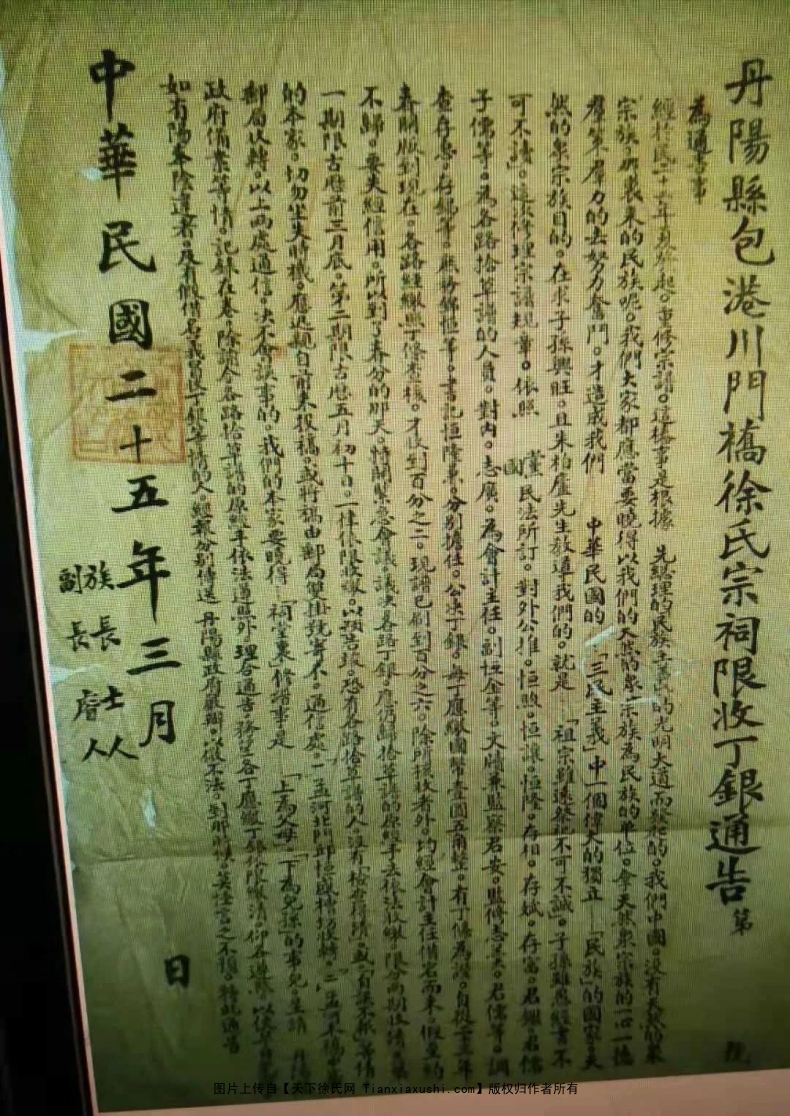 丹陽縣包港川門橋徐氏宗祠限收丁銀通告 第 號
為通告事
經於民廿 年 起。重修宗譜。這樁事是根據 先總理的民族主義的光明大道而發起的。我們中國。沒有天然的眾
宗族。那裏來的民族呢。我們大家都應當要曉得以我們的天然的眾宗族為民族的單位。拿天然眾宗族的一心一德
羣策羣力的去努力奮鬥。才造成我們 中華民國的「三民主義」中一個偉大的獨立—「民族」的國家。天
然的眾宗族目的。在求子孫興旺。且朱柏廬先生教導我們的。就是「祖宗雖遠祭祀不可不誠。子孫雖愚經書不
可不讀。這次修理宗譜規章。依照 黨國 民法所訂。對外公推。恒煦。恒讓。恒隆。存相。存斌。存富。君 。君儒
子儒等。為各路拾草譜的人員。對內。志廣。為會計主任。副恒金等。文牘兼監察君安。監修志 。君儒等。調
查存忠。存錫等。庶務錦恒等。書記恒隆 。分別擔任。公決丁銀。每丁應繳國幣壹圓五角整。有丁條為證。自 二十三年
春開 到現在。各路經繳照丁條查核。才收到百分之二。現譜已刷到百分之六。除開 者外。均經會計主任借名而來。假 約
不歸。要失信用。所以到了春分的那天。特開緊急會議。議決各路丁銀。應仍歸拾草譜的原經手去依法收繳。限分兩期收清。第
一期限古歷前三月底。第二期限古歷五月初十日。一律依限收繳。以 告竣。恐有各路拾草譜的人。沒有「檢查得清」或「自誤不報」等情
的本家。切勿坐失時機。應 親自前來報稿。或將稿由郵局雙掛號寄下。通信處。一孟河北門邱恒 轉。二孟河
郵局收轉。以上兩處通信。決不會誤事的。我們的本家要曉得「祠堂裏」修譜事是「上為父母」「下為兒孫」的事呢。呈請 丹陽縣
政府備案等情。記錄在卷。除諭令各路拾草譜的原經手依法遵照外。理合通告。務望各丁應繳丁銀依限繳清。仰各遵照。以
如有陽奉陰違者。及有假借名義冒收丁銀等情的人。經 分別傳送 丹陽縣政府嚴辦。以儆不法。到那時候。莫怪言之不預。特此通告
中華民國二十五年三月 日
族長 士人
副長 庸人
图片上传自【天下徐氏网 Tianxiaxushi.com】版权归作者所有